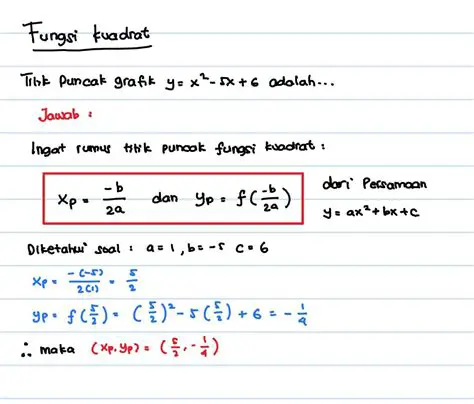 Fungsi kuadrat
Titik puncak grafik y = x² - 5x + 6 adalah...
Jawab :
Ingat rumus titik puncak fungsi kuadrat :
xp = -b/2a dan yp = f(-b/2a) dari Persamaan
y = ax² + bx + c
Diketahui soal : a = 1, b = -5 c = 6
xp = -(-5)/2(1) = 5/2
yp = f(5/2) = (5/2)² - 5(5/2) + 6 = -1/4
∴ maka (xp, yp) = (5/2, -1/4)